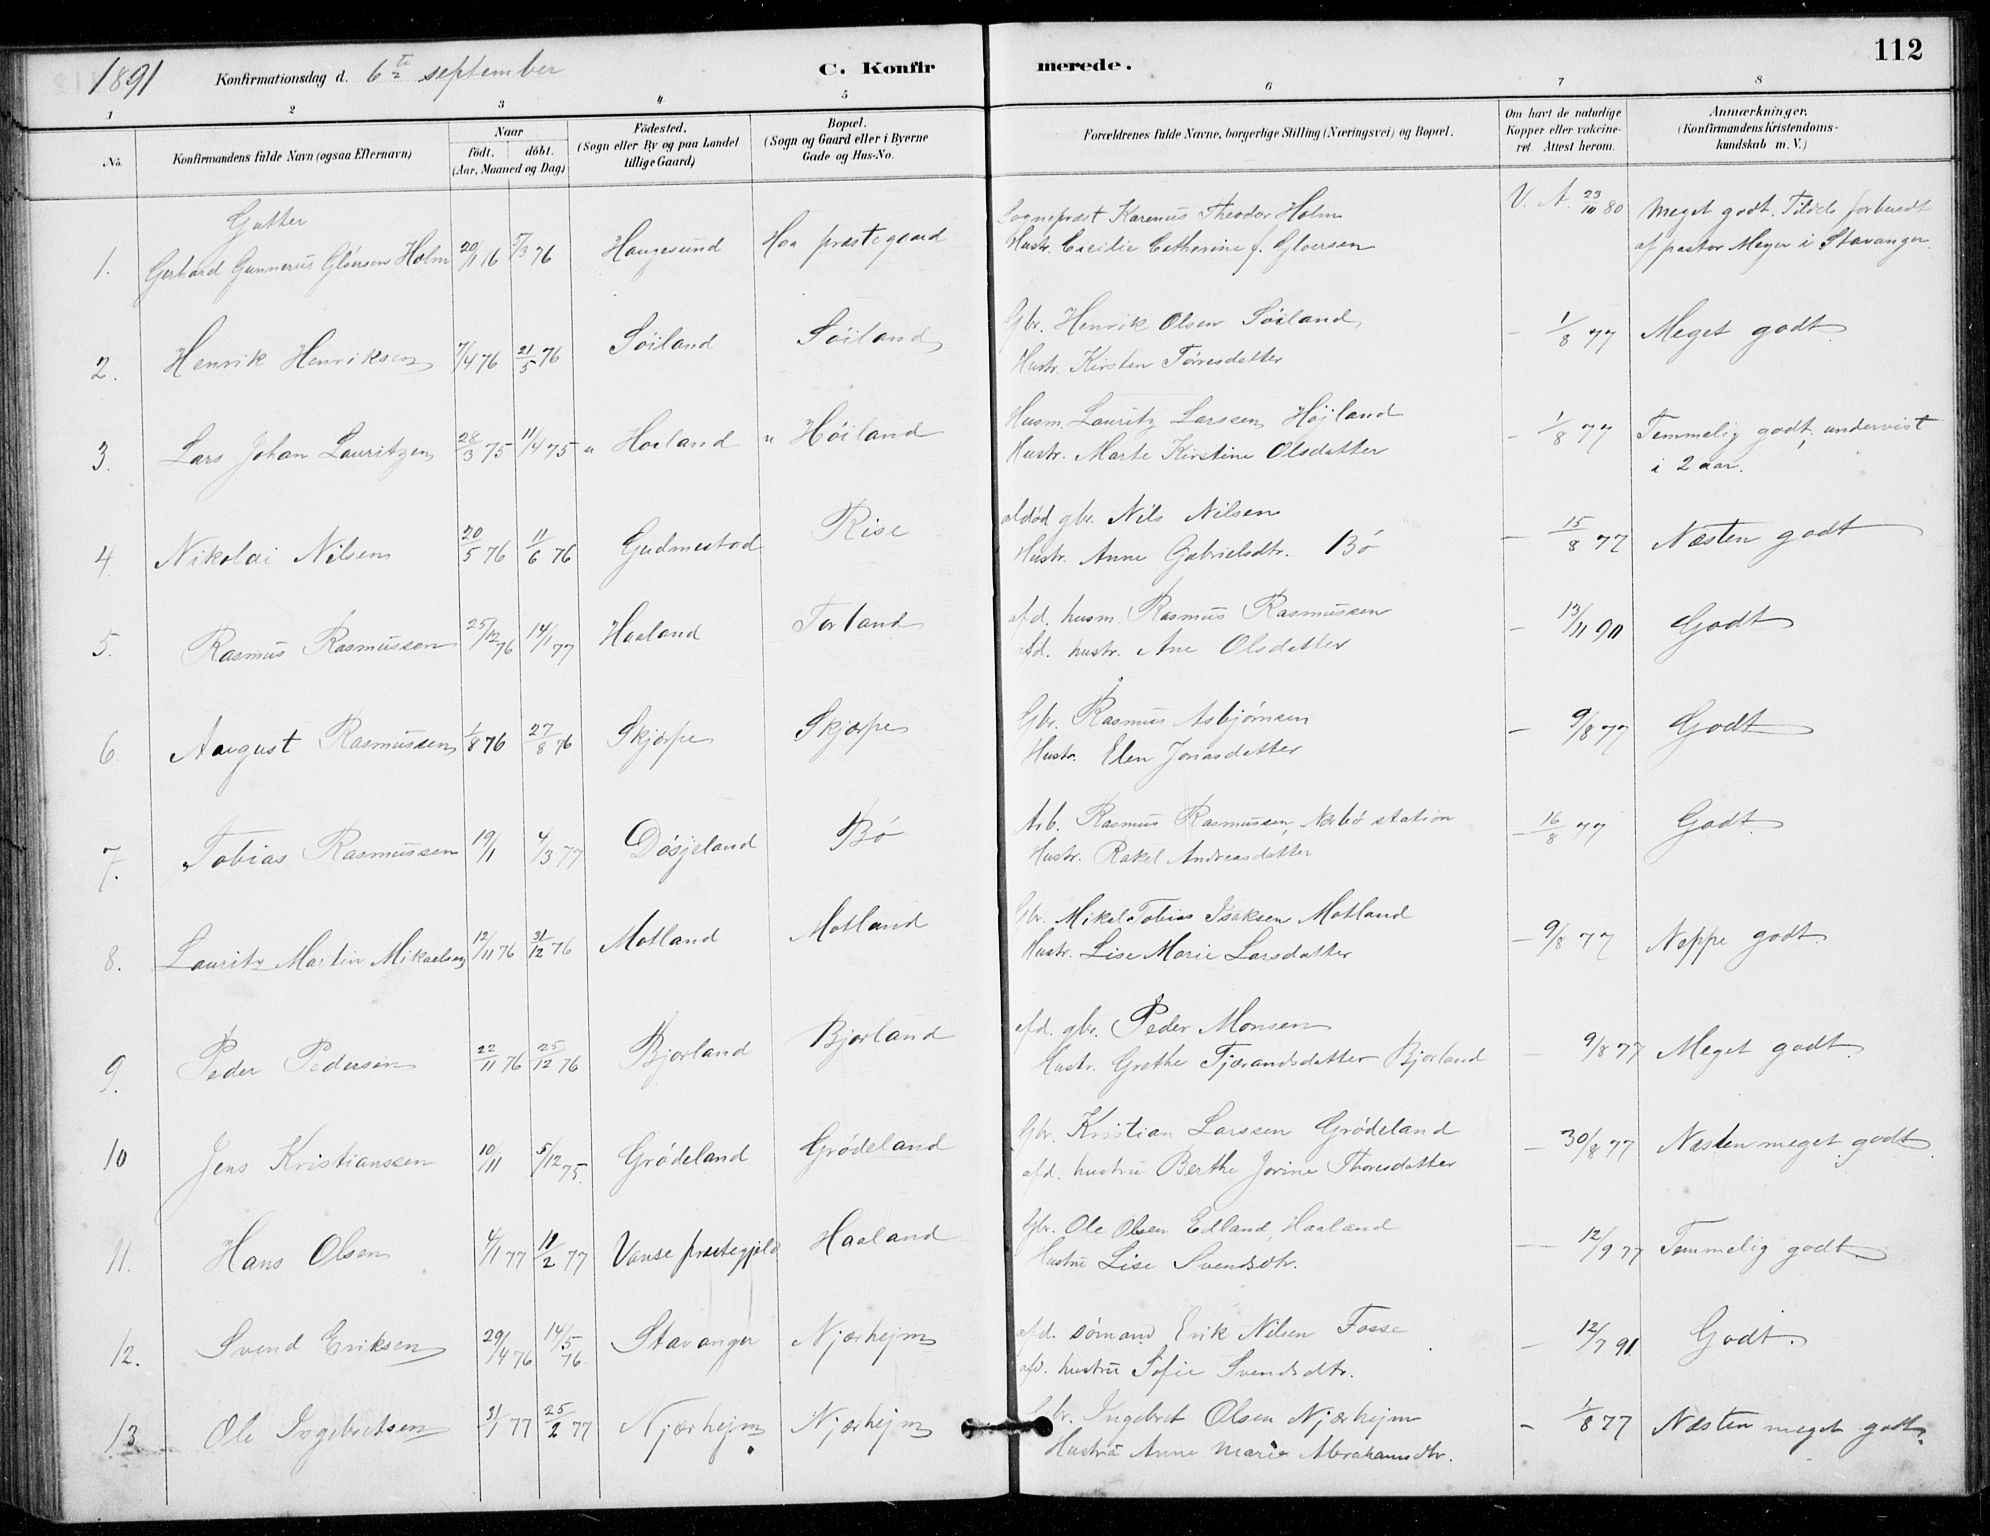 1891 Konfirmationsdag d. 6te september C. Konfirmerede. 112
1 2 3 4 5 6 7 8
No. Konfirmandens fulde Navn (ogsaa Efternavn) Naar födt. döbt. (Aar, Maaned og Dag) Födested. (Sogn eller By og paa Landet tillige Gaard) Bopæl. (Sogn og Gaard eller i Byerne Gade og Hus-No. Forældrenes fulde Navne, borgerlige Stilling (Næringsvei) og Bopæl. Om havt de naturlige Kopper eller vakcineret. Attest herom. Anmærkninger. (Konfirmandens Kristendomskundskab m. V.)
Gutter
1. Gerhard Gunnerus Gløersen Holm 20/1 76 7/3 76 Haugesund Haa præstegaard Sognepræst Karenus Theodor Holm V. A. 23/10 80 Meget godt. Tildels forberedt
Hustr. Cæcilie Catharine f. Gloersen af pastor Meyer i Stavanger.
2. Henrik Henriksen 7/4 76 21/5 76 Söiland Söiland Gbr. Henrik Olsen Söiland, – 1/8 77 Meget godt.
Hustr. Kirsten Tørresdatter
3. Lars Johan Lauritzen 28/3 75 11/4 75 " Høiland " Höiland Husm. Lauritz Larssen Højland – 1/8 77 Temmelig godt, undervist
Hustr. Marte Kirstine Olsdatter i 2 aar.
4. Nikolai Nilsen 20/5 76 11/6 76 Gudmestad Rise afdød gbr. Nils Nilsen – 15/8 77 Næsten godt
Hustr. Anne Gabrielsdtr. Bö
5. Rasmus Rasmussen 25/12 76 14/1 77 Haaland Torland afd. husm. Rasmus Rasmussen – 13/11 90 Godt
afd. hustr. Ane Olsdatter
6. August Rasmussen 1/8 76 27/8 76 Skjærpe Skjærpe Gbr. Rasmus Asbjørnsen – 9/8 77 Godt
Hustr. Elen Jonasdatter
7. Tobias Rasmussen 19/11 4/3 77 Dösjeland Bö Arb. Rasmus Rasmussen, Nærbö station – 16/8 77 Godt.
Hustr. Rakel Andreasdatter
8. Lauritz Martin Mikaelsen 12/11 76 31/12 76 Motland Motland Gbr. Mikal Tobias Isaksen Motland – 9/8 77 Neppe godt.
Hustr. Lise Marie Larsdatter
9. Peder Pedersen 22/11 76 25/12 76 Bjorland Bjorland afd. gbr. Peder Monsen – 9/8 77 Meget godt.
Hustr. Grethe Tjærandsdatter Bjorland
10 Jens Kristianssen 10/11 5/12 75. Grödeland Grödeland Gbr. Kristian Larssen Grödeland – 30/8 77 Næsten meget godt
afd. hustru Berthe Jorine Thoresdatter
11. Hans Olsen 4/1 77 11/2 77 Vanse præstegjeld Haaland Gbr. Ole Olsen Edland, Haaland – 12/9 77 Temmelig godt
Hustru Lise Svendsdtr.
12. Svend Eriksen 29/4 76 14/5 76 Stavanger Njærhejm afd. sømand Erik Nilsen Fosse – 12/7 91. Godt.
afd. hustru Sofie Svendsdtr.
13 Ole Ingebretsen 31/1 77 25/2 77 Njærhejm Njærhejm Gbr. Ingebret Olsen Njærhejm – 1/8 77 Næsten meget godt.
Hustru Anne Marie Abrahamsdtr.